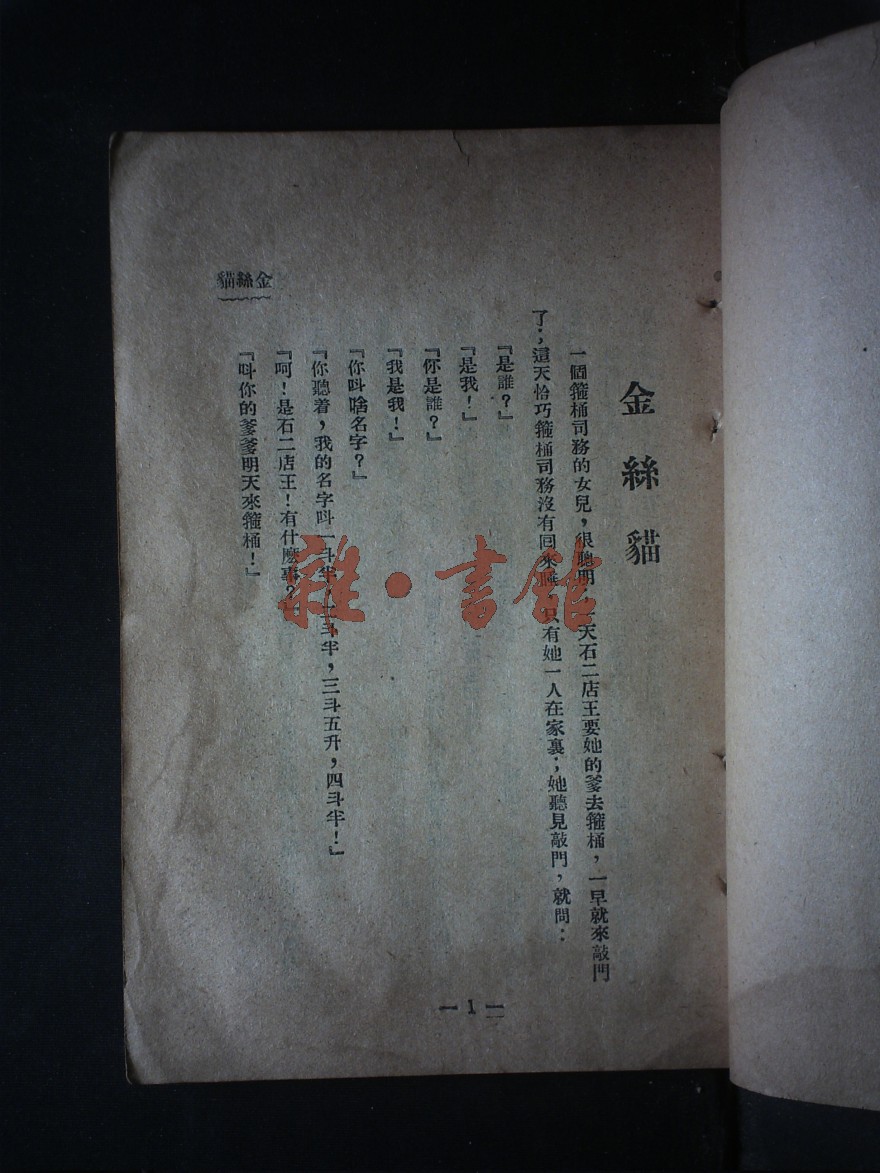 金絲貓
一個箍桶司務的女兒，很聰明，一天石二店王要她的爹去箍桶，一早就來敲門
了；這天恰巧箍桶司務沒有回來睡，只有她一人在家裏；她聽見敲門，就問：
『是誰？』
『是我！』
『你是誰？』
『我是我！』
『你呌啥名字？』
『你聽着，我的名字呌一斗半，二斗半，三斗五升，四斗半！』
『呵！是石二店王！有什麽事？』
『呌你的爹爹明天來箍桶！』
金絲貓
— 1 —
雜·書館